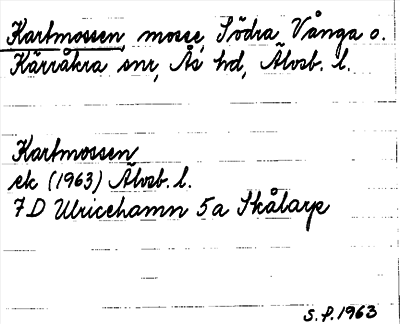 Kartmossen, mosse, Södra Vånga o.
Kärråkra snr, Ås hd, Älvsb. l.
Kartmossen
ek (1963) Älvsb. l.
7 D Ulricehamn 5a Skålarp
S.P. 1963